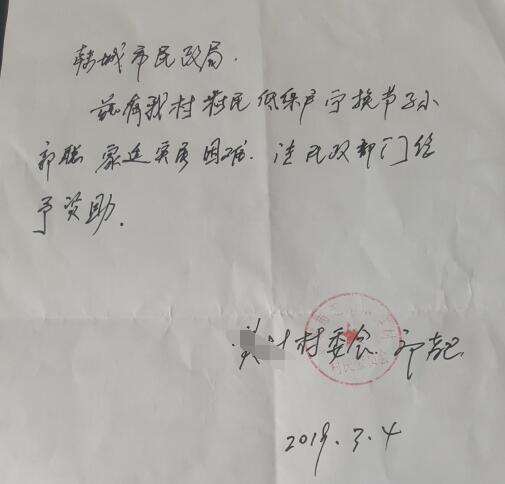 韩城市民政局.
兹有我村村民低保户宁换芳子小
郭聪家庭实属困难.请民政部门给
予资助.
村委会
2019.3.4